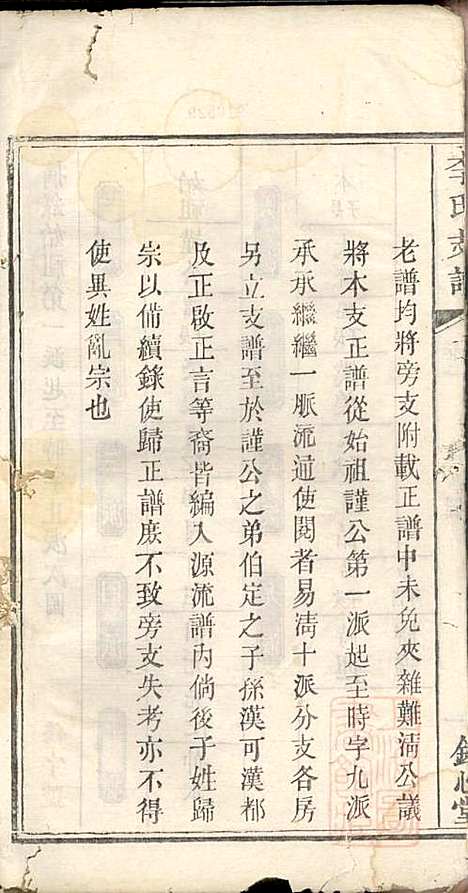 李氏支譜
老譜均將旁支附載正譜中未免夾雜難清公議
將木支正譜從始祖謹公第一派起至時字九派
承承繼繼一脈流通使閱者易淸十派分支各房
另立支譜至於謹公之弟伯定之子孫漢可漢都
及正啟正言等裔皆編入源流譜內倘後子姓歸
宗以備續錄使歸正譜庻不致旁支失考亦不得
使異姓亂宗也